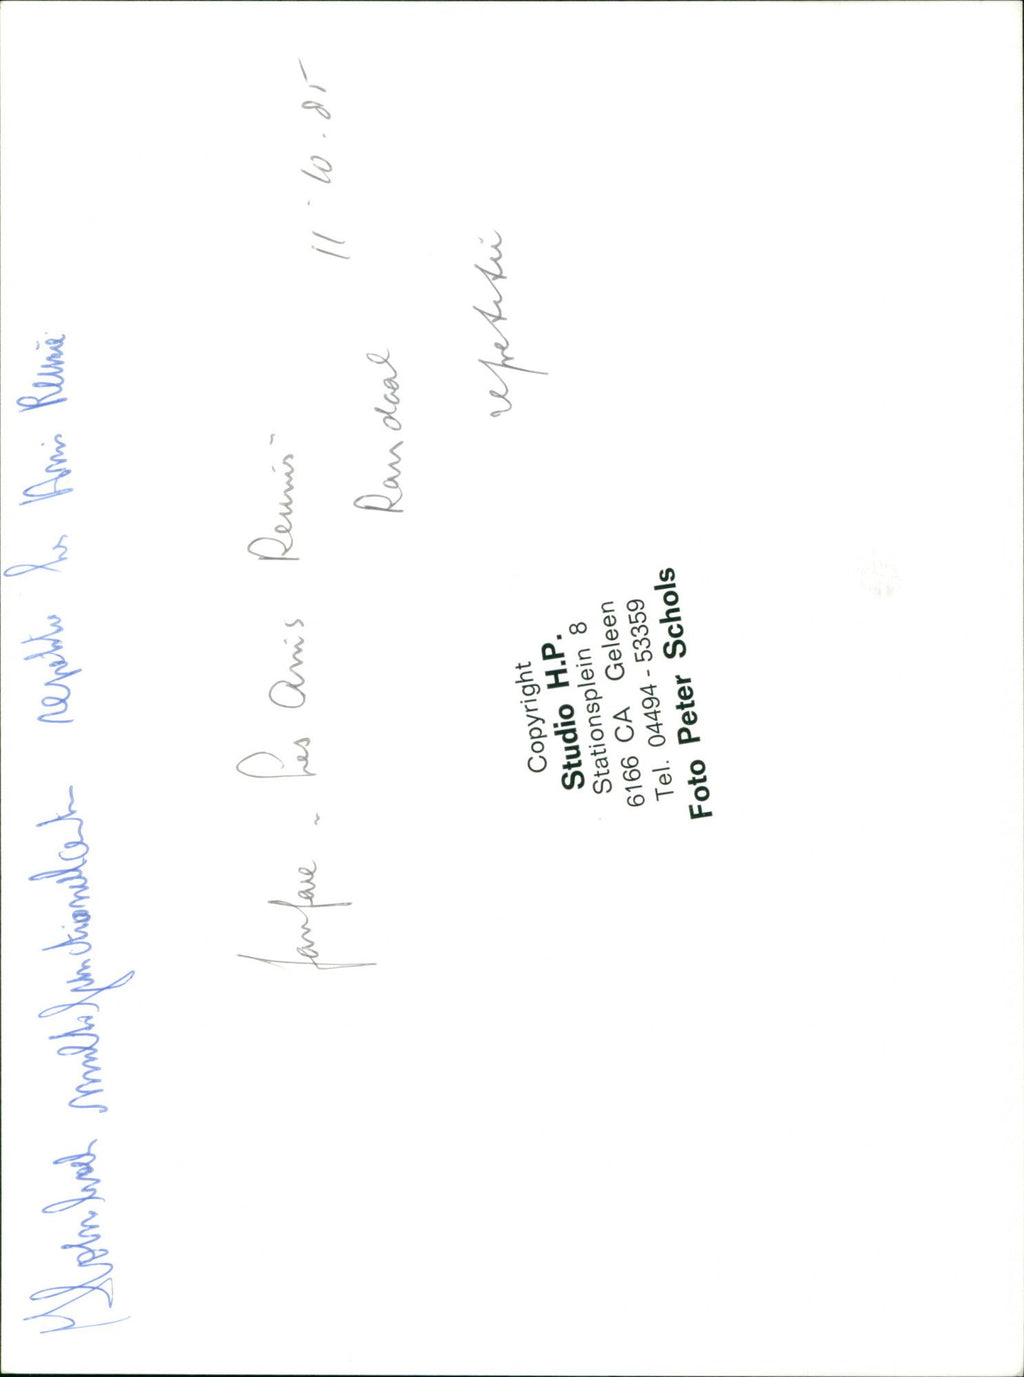 repetitie Les Amis Reunis
Fanfare - Les Amis Reunis
11-10-85
Ransdaal
repetitie
Copyright
Studio H.P.
Stationsplein 8
6166 CA Geleen
Tel. 04494 - 53359
Foto Peter Schols